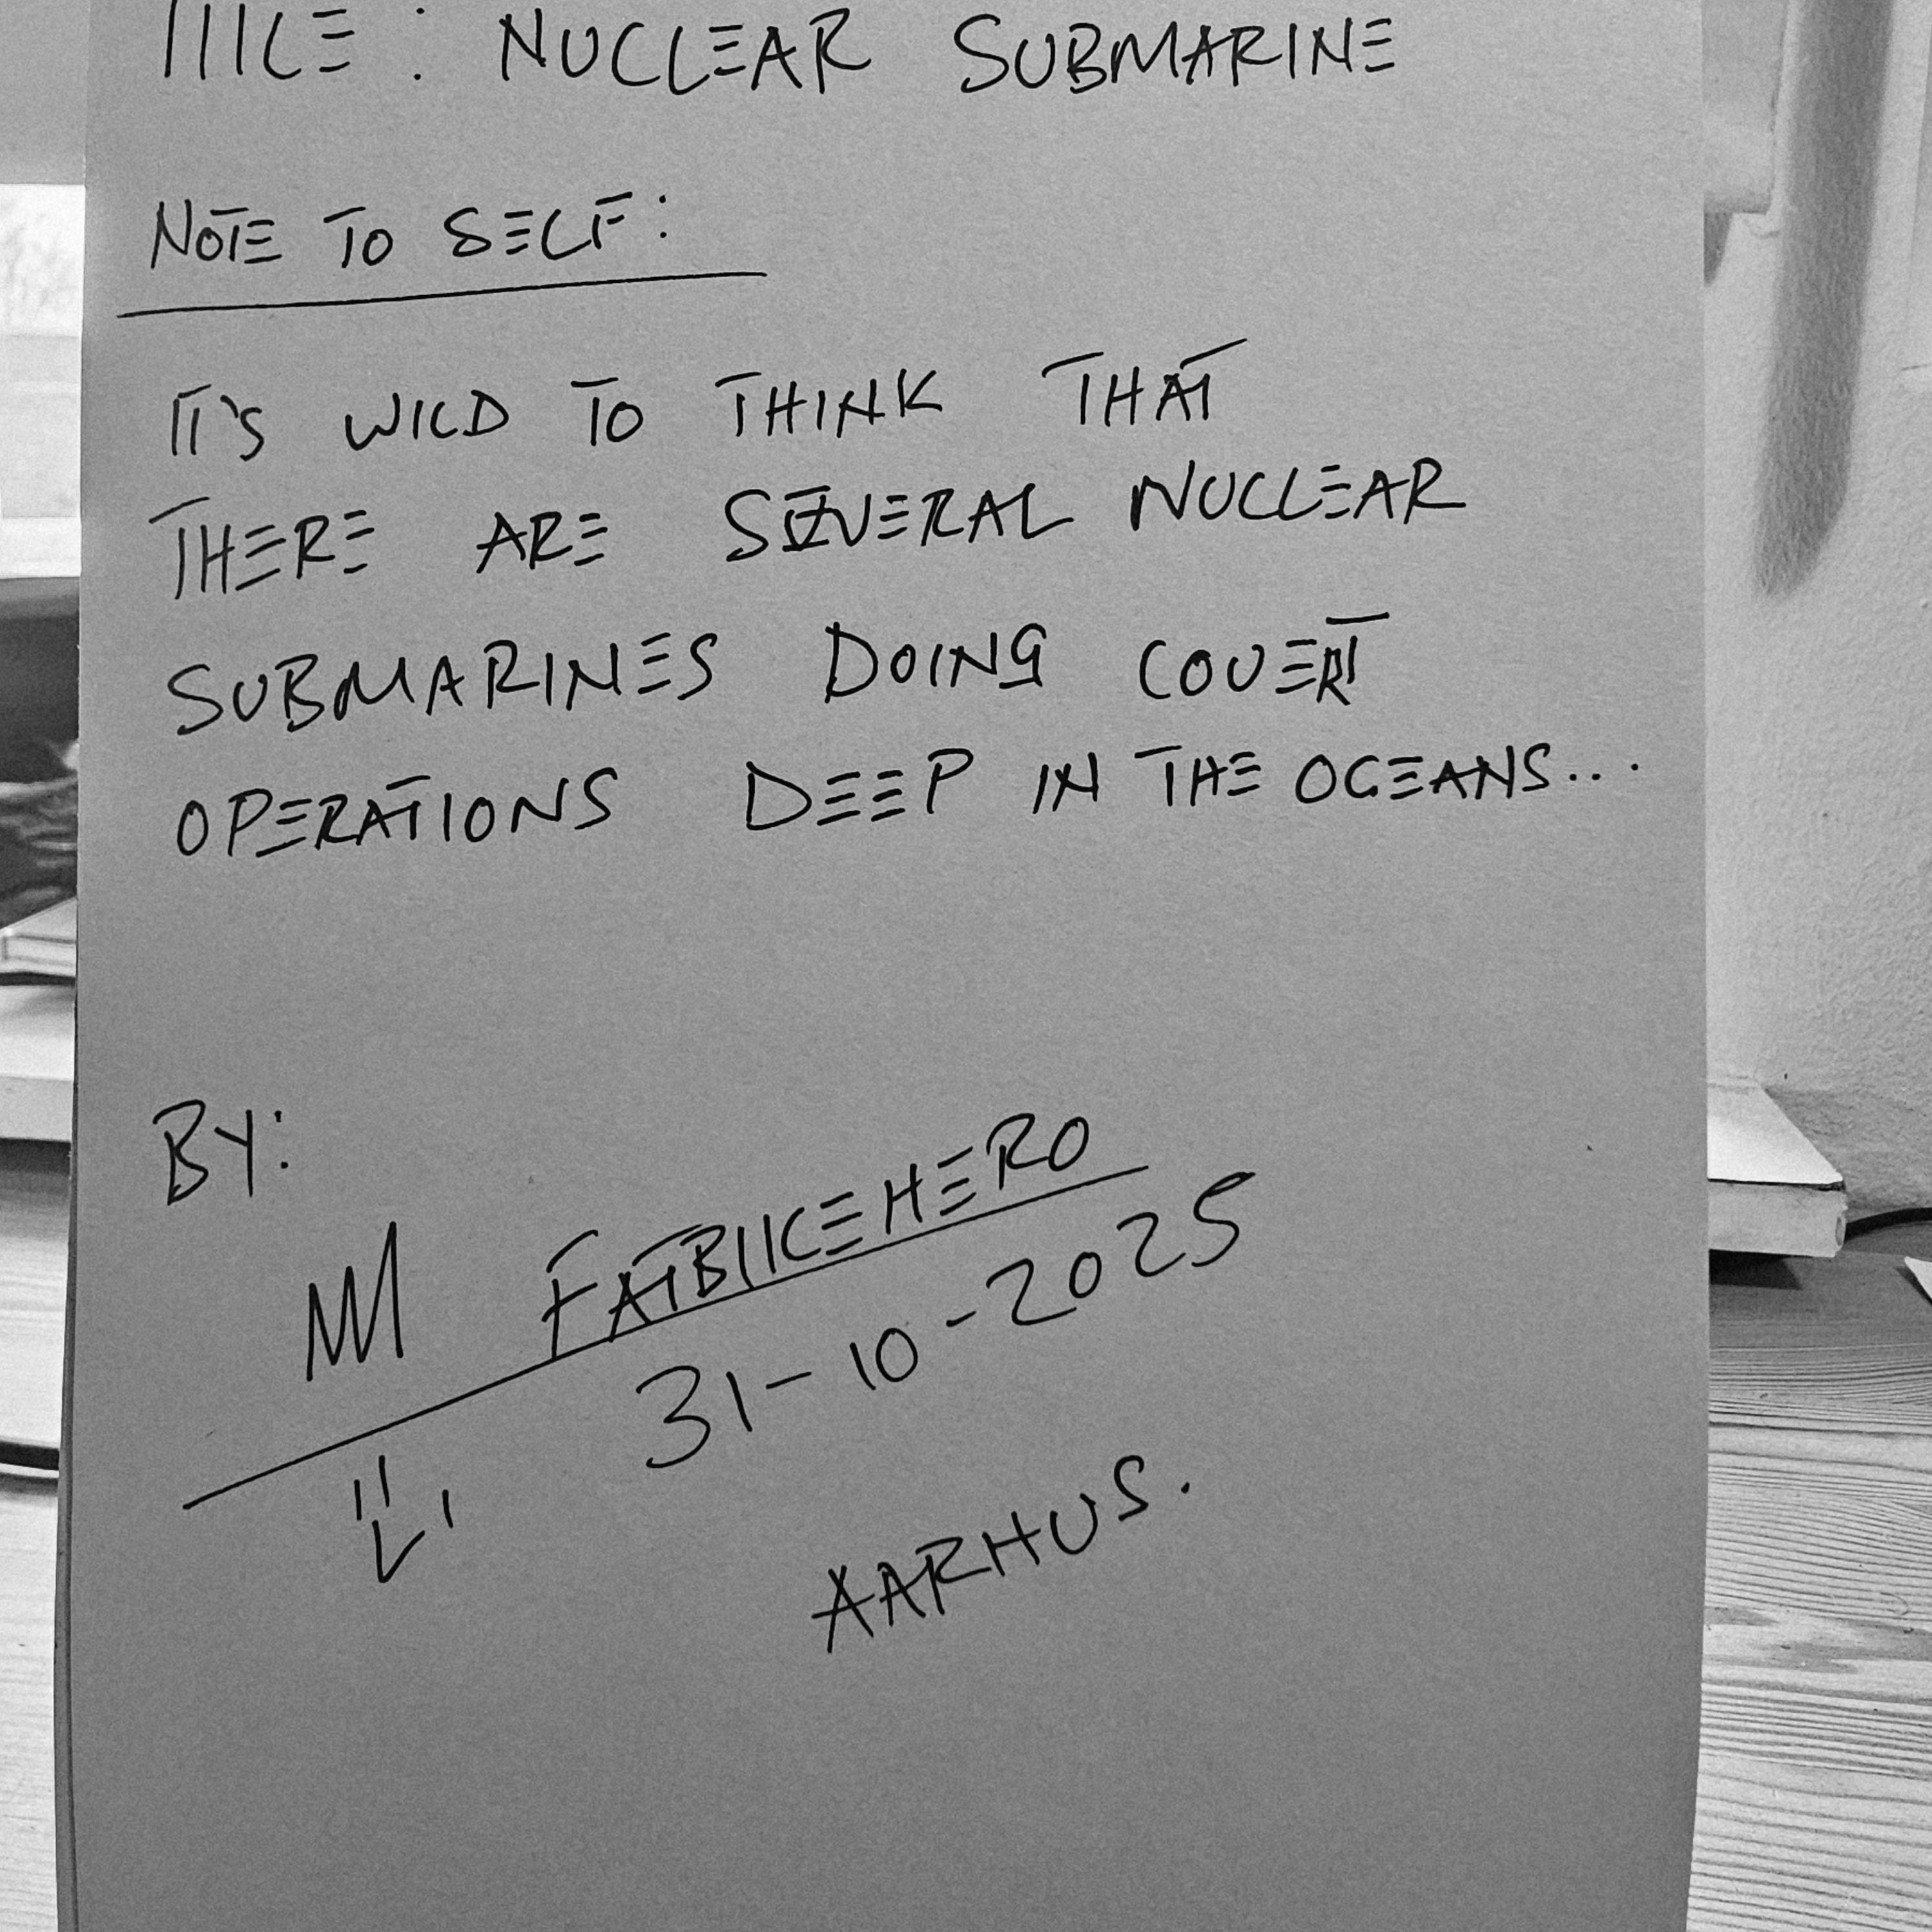 TITLE: NUCLEAR SUBMARINE
NOTE TO SELF:
IT'S WILD TO THINK THAT
THERE ARE SEVERAL NUCLEAR
SUBMARINES DOING COVERT
OPERATIONS DEEP IN THE OCEANS...
BY:
FATBIKEHERO
31-10-2025
AARHUS.